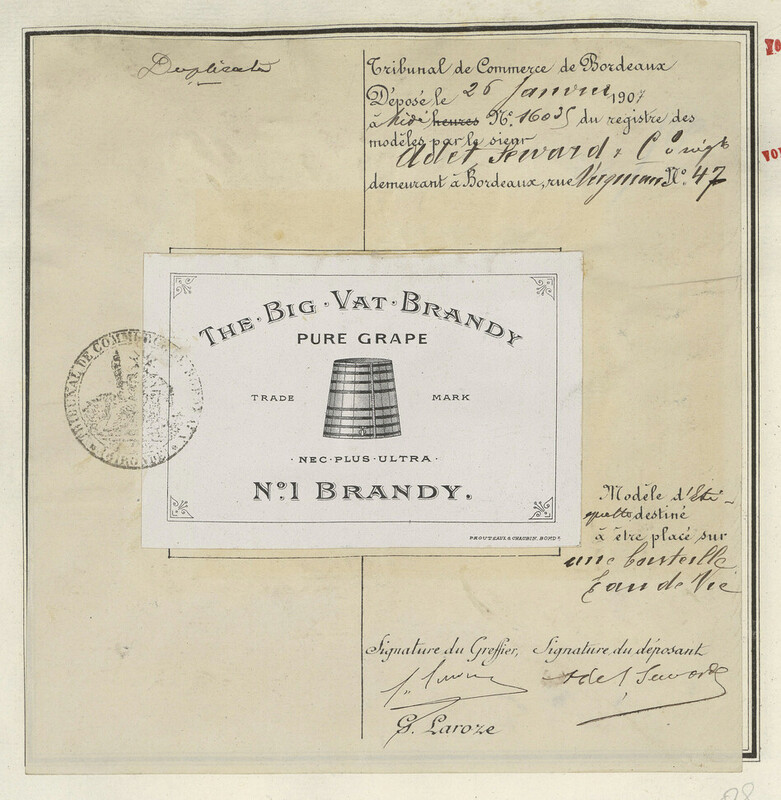 Duplicata
Tribunal de Commerce de Bordeaux
Déposé le 26 Janvier 1907
à Midi heures No. 16035 du registre des
modèles par le sieur
Adet, Seward & Co
demeurant à Bordeaux, rue No. 47
THE·BIG·VAT·BRANDY
PURE GRAPE
TRADE MARK
·NEC·PLUS·ULTRA·
No.1 BRANDY.
PROUTEAUX & CHAUBIN, BORDX.
TRIBUNAL DE COMMERCE DE BORDEAUX
GIRONDE
Modèle d'Eti-
quette destiné
à être placé sur
une bouteille
Eau de Vie
Signature du Greffier, Signature du déposant
Adet Seward
G. Laroze